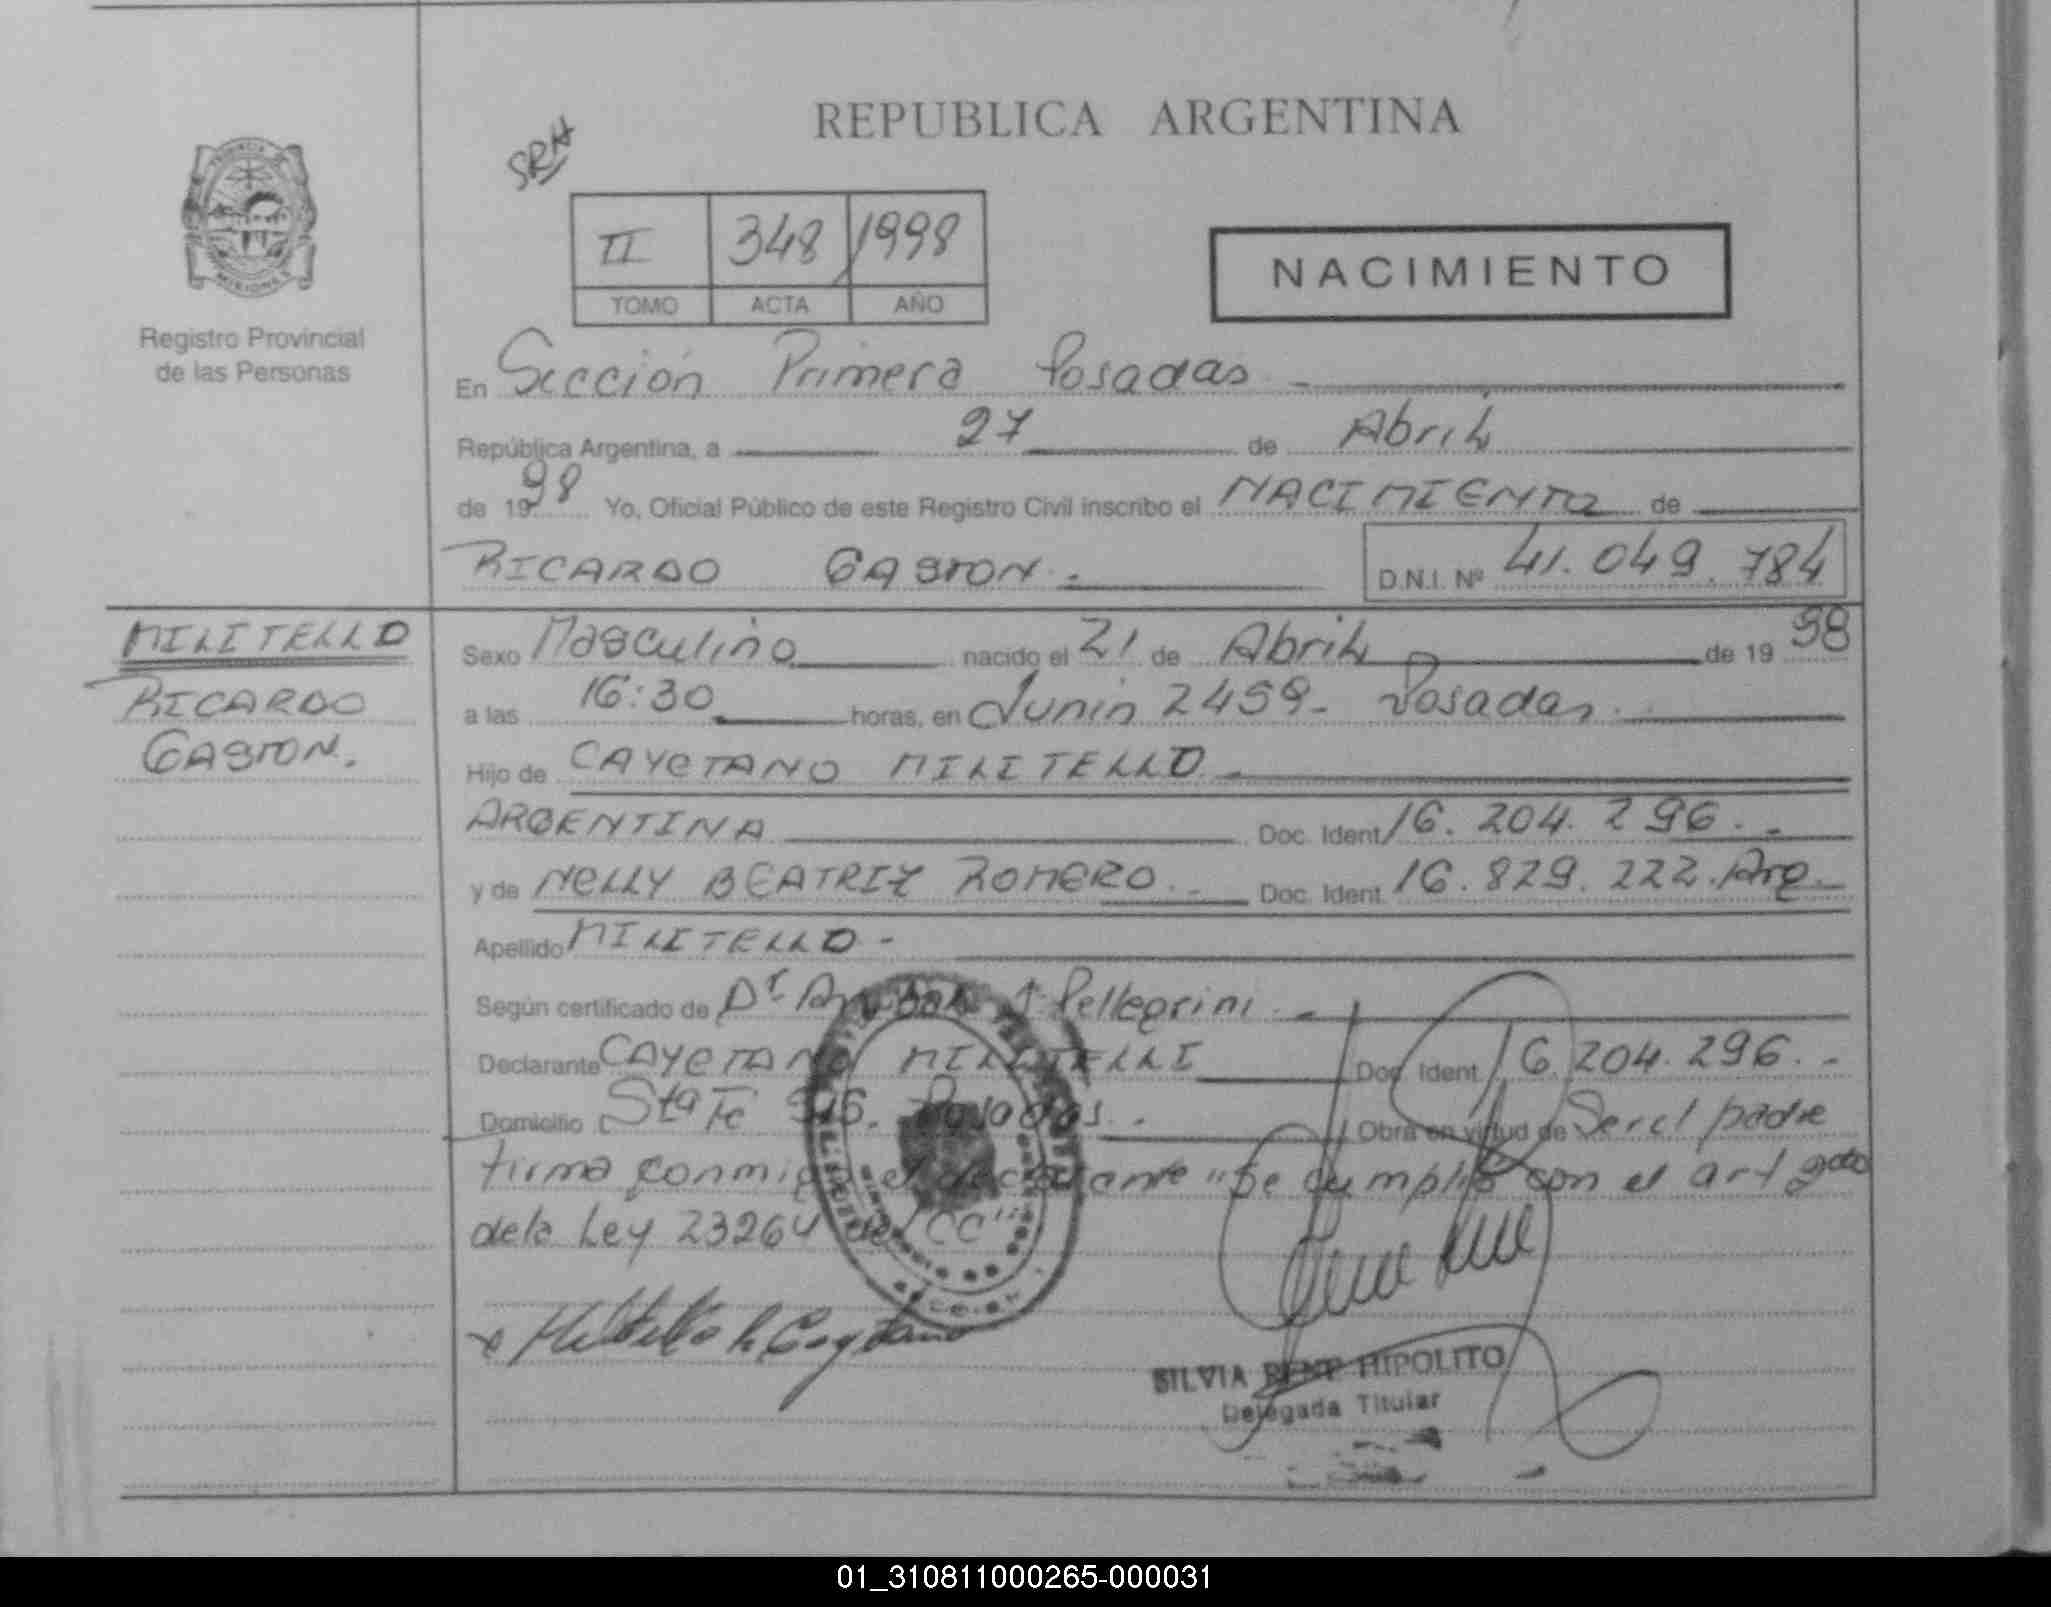 REPUBLICA ARGENTINA
SRH
II 348 1998
TOMO ACTA AÑO
NACIMIENTO
PROVINCIA DE
MISIONES
Registro Provincial
de las Personas
En Sección Primera Posadas
República Argentina, a 27 de Abril
de 1998 Yo, Oficial Público de este Registro Civil inscribo el NACIMIENTO de
RICARDO GASTON.- D.N.I. Nº 41.049.784
MILITELLO
RICARDO
GASTON.
Sexo Masculino nacido el 21 de Abril de 1998
a las 16:30 horas, en Junin 2459- Posadas.
Hijo de CAYETANO MILITELLO.-
ARGENTINA Doc. Ident 16.204.296.-
y de NELLY BEATRIZ ROMERO.- Doc. Ident. 16.829.222.Arg.-
Apellido MILITELLO-
Según certificado de Dr Pellegrini.-
Declarante CAYETANO MILITELLI Doc. Ident. 16.204.296.-
Domicilio Sta Fe Posadas.- Obra en virtud de Ser el padre
firma conmigo el declarante "Se cumplió con el art 2do
de la Ley 23264 del CC"
Militello Cayetano
SILVIA HIPOLITO
Delegada Titular
01_310811000265-000031